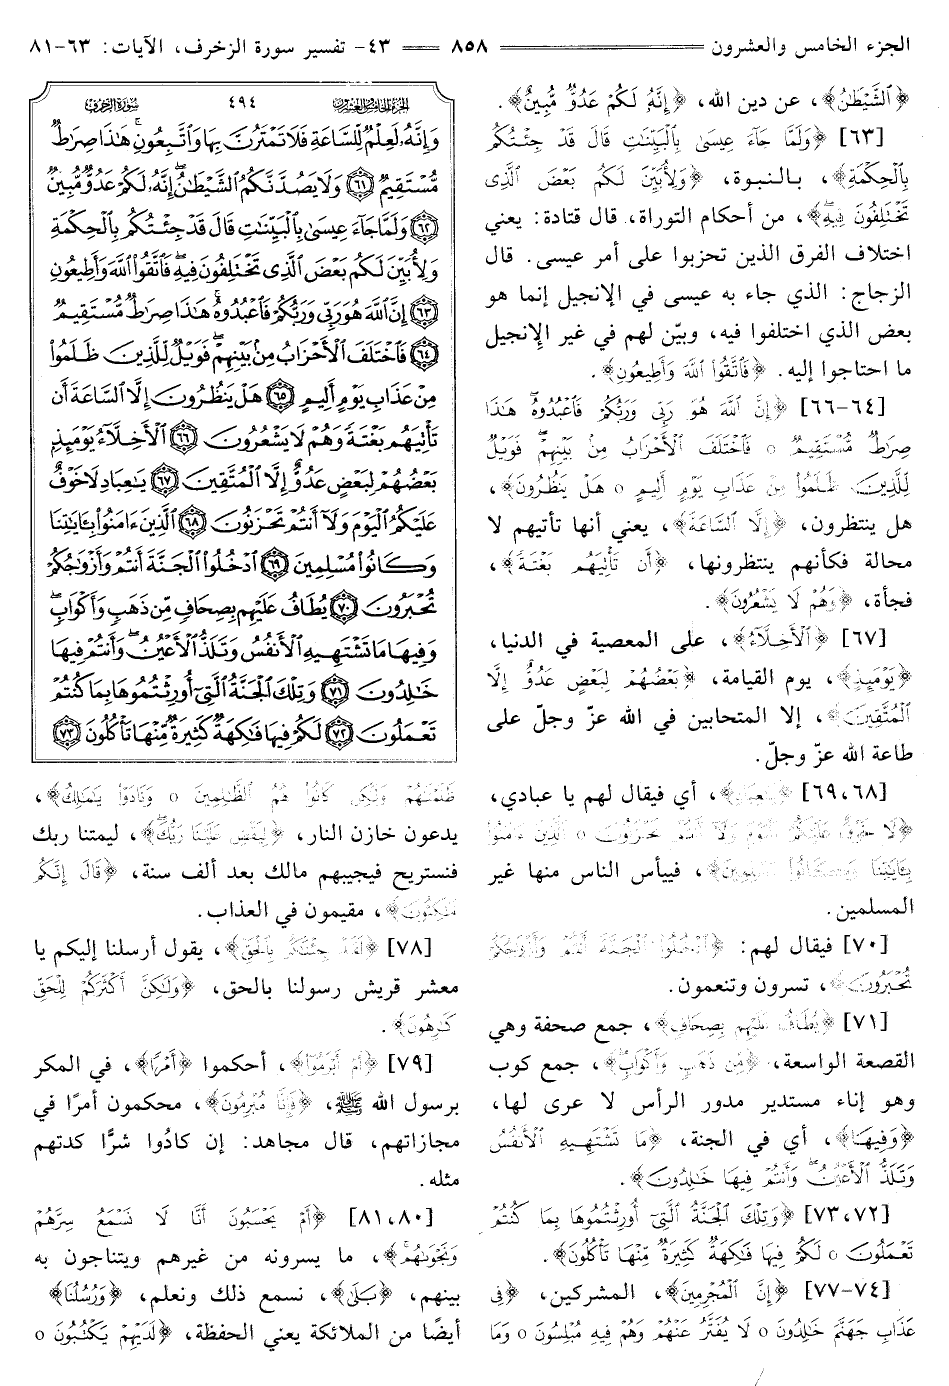 الجزء الخامس والعشرون ٨٥٨ ٤٣- تفسير سورة الزخرف، الآيات: ٦٣-٨١
﴿الشَّيْطَانُ﴾، عن دين الله، ﴿إِنَّهُ لَكُمْ عَدُوٌّ مُّبِينٌ﴾.
[٦٣] ﴿وَلَمَّا جَاءَ عِيسَىٰ بِالْبَيِّنَاتِ قَالَ قَدْ جِئْتُكُم
بِالْحِكْمَةِ﴾، بالنبوة، ﴿وَلِأُبَيِّنَ لَكُم بَعْضَ الَّذِي
تَخْتَلِفُونَ فِيهِ﴾، من أحكام التوراة، قال قتادة: يعني
اختلاف الفرق الذين تحزبوا على أمر عيسى. قال
الزجاج: الذي جاء به عيسى في الإنجيل إنما هو
بعض الذي اختلفوا فيه، وبيّن لهم في غير الإنجيل
ما احتاجوا إليه. ﴿فَاتَّقُوا اللَّهَ وَأَطِيعُونِ﴾.
[٦٤-٦٦] ﴿إِنَّ اللَّهَ هُوَ رَبِّي وَرَبُّكُمْ فَاعْبُدُوهُ هَٰذَا
صِرَاطٌ مُّسْتَقِيمٌ ٥ فَاخْتَلَفَ الْأَحْزَابُ مِن بَيْنِهِمْ فَوَيْلٌ
لِّلَّذِينَ ظَلَمُوا مِنْ عَذَابِ يَوْمٍ أَلِيمٍ ٥ هَلْ يَنظُرُونَ﴾،
هل ينتظرون، ﴿إِلَّا السَّاعَةَ﴾، يعني أنها تأتيهم لا
محالة فكأنهم ينتظرونها، ﴿أَن تَأْتِيَهُم بَغْتَةً﴾،
فجأة، ﴿وَهُمْ لَا يَشْعُرُونَ﴾.
[٦٧] ﴿الْأَخِلَّاءُ﴾، على المعصية في الدنيا،
﴿يَوْمَئِذٍ﴾، يوم القيامة، ﴿بَعْضُهُمْ لِبَعْضٍ عَدُوٌّ إِلَّا
الْمُتَّقِينَ﴾، إلا المتحابين في الله عزّ وجلّ على
طاعة الله عزّ وجلّ.
[٦٨،٦٩] ﴿يَا عِبَادِ﴾، أي فيقال لهم يا عبادي،
﴿لَا خَوْفٌ عَلَيْكُمُ الْيَوْمَ وَلَا أَنتُمْ تَحْزَنُونَ ٥ الَّذِينَ آمَنُوا
بِآيَاتِنَا وَكَانُوا مُسْلِمِينَ﴾، فييأس الناس منها غير
المسلمين.
[٧٠] فيقال لهم: ﴿ادْخُلُوا الْجَنَّةَ أَنتُمْ وَأَزْوَاجُكُمْ
تُحْبَرُونَ﴾، تسرون وتنعمون.
[٧١] ﴿يُطَافُ عَلَيْهِم بِصِحَافٍ﴾، جمع صحفة وهي
القصعة الواسعة، ﴿مِّن ذَهَبٍ وَأَكْوَابٍ﴾، جمع كوب
وهو إناء مستدير مدور الرأس لا عرى لها،
﴿وَفِيهَا﴾، أي في الجنة، ﴿مَا تَشْتَهِيهِ الْأَنفُسُ
وَتَلَذُّ الْأَعْيُنُ وَأَنتُمْ فِيهَا خَالِدُونَ﴾.
[٧٢،٧٣] ﴿وَتِلْكَ الْجَنَّةُ الَّتِي أُورِثْتُمُوهَا بِمَا كُنتُمْ
تَعْمَلُونَ ٥ لَكُمْ فِيهَا فَاكِهَةٌ كَثِيرَةٌ مِّنْهَا تَأْكُلُونَ﴾.
[٧٤-٧٧] ﴿إِنَّ الْمُجْرِمِينَ﴾، المشركين، ﴿فِي
عَذَابِ جَهَنَّمَ خَالِدُونَ ٥ لَا يُفَتَّرُ عَنْهُمْ وَهُمْ فِيهِ مُبْلِسُونَ ٥ وَمَا
الجزء الخامس والعشرون ٤٩٤ سورة الزخرف
وَإِنَّهُ لَعِلْمٌ لِّلسَّاعَةِ فَلَا تَمْتَرُنَّ بِهَا وَاتَّبِعُونِ هَٰذَا صِرَاطٌ
مُّسْتَقِيمٌ ٦١ وَلَا يَصُدَّنَّكُمُ الشَّيْطَانُ إِنَّهُ لَكُمْ عَدُوٌّ مُّبِينٌ
٦٢ وَلَمَّا جَاءَ عِيسَىٰ بِالْبَيِّنَاتِ قَالَ قَدْ جِئْتُكُم بِالْحِكْمَةِ
وَلِأُبَيِّنَ لَكُم بَعْضَ الَّذِي تَخْتَلِفُونَ فِيهِ فَاتَّقُوا اللَّهَ وَأَطِيعُونِ
٦٣ إِنَّ اللَّهَ هُوَ رَبِّي وَرَبُّكُمْ فَاعْبُدُوهُ هَٰذَا صِرَاطٌ مُّسْتَقِيمٌ
٦٤ فَاخْتَلَفَ الْأَحْزَابُ مِن بَيْنِهِمْ فَوَيْلٌ لِّلَّذِينَ ظَلَمُوا
مِنْ عَذَابِ يَوْمٍ أَلِيمٍ ٦٥ هَلْ يَنظُرُونَ إِلَّا السَّاعَةَ أَن
تَأْتِيَهُم بَغْتَةً وَهُمْ لَا يَشْعُرُونَ ٦٦ الْأَخِلَّاءُ يَوْمَئِذٍ
بَعْضُهُمْ لِبَعْضٍ عَدُوٌّ إِلَّا الْمُتَّقِينَ ٦٧ يَا عِبَادِ لَا خَوْفٌ
عَلَيْكُمُ الْيَوْمَ وَلَا أَنتُمْ تَحْزَنُونَ ٦٨ الَّذِينَ آمَنُوا بِآيَاتِنَا
وَكَانُوا مُسْلِمِينَ ٦٩ ادْخُلُوا الْجَنَّةَ أَنتُمْ وَأَزْوَاجُكُمْ
تُحْبَرُونَ ٧٠ يُطَافُ عَلَيْهِم بِصِحَافٍ مِّن ذَهَبٍ وَأَكْوَابٍ
وَفِيهَا مَا تَشْتَهِيهِ الْأَنفُسُ وَتَلَذُّ الْأَعْيُنُ وَأَنتُمْ فِيهَا
خَالِدُونَ ٧١ وَتِلْكَ الْجَنَّةُ الَّتِي أُورِثْتُمُوهَا بِمَا كُنتُمْ
تَعْمَلُونَ ٧٢ لَكُمْ فِيهَا فَاكِهَةٌ كَثِيرَةٌ مِّنْهَا تَأْكُلُونَ ٧٣
ظَلَمْنَاهُمْ وَلَٰكِن كَانُوا هُمُ الظَّالِمِينَ ٥ وَنَادَوْا يَا مَالِكُ﴾،
يدعون خازن النار، ﴿لِيَقْضِ عَلَيْنَا رَبُّكَ﴾، ليمتنا ربك
فنستريح فيجيبهم مالك بعد ألف سنة، ﴿قَالَ إِنَّكُم
مَّاكِثُونَ﴾، مقيمون في العذاب.
[٧٨] ﴿لَقَدْ جِئْنَاكُم بِالْحَقِّ﴾، يقول أرسلنا إليكم يا
معشر قريش رسولنا بالحق، ﴿وَلَٰكِنَّ أَكْثَرَكُمْ لِلْحَقِّ
كَارِهُونَ﴾.
[٧٩] ﴿أَمْ أَبْرَمُوا﴾، أحكموا ﴿أَمْرًا﴾، في المكر
برسول الله ﷺ، ﴿فَإِنَّا مُبْرِمُونَ﴾، محكمون أمرًا في
مجازاتهم، قال مجاهد: إن كادُوا شرًّا كدتهم
مثله.
[٨٠،٨١] ﴿أَمْ يَحْسَبُونَ أَنَّا لَا نَسْمَعُ سِرَّهُمْ
وَنَجْوَاهُم﴾، ما يسرونه من غيرهم ويتناجون به
بينهم، ﴿بَلَىٰ﴾، نسمع ذلك ونعلم، ﴿وَرُسُلُنَا﴾
أيضًا من الملائكة يعني الحفظة، ﴿لَدَيْهِمْ يَكْتُبُونَ ٥